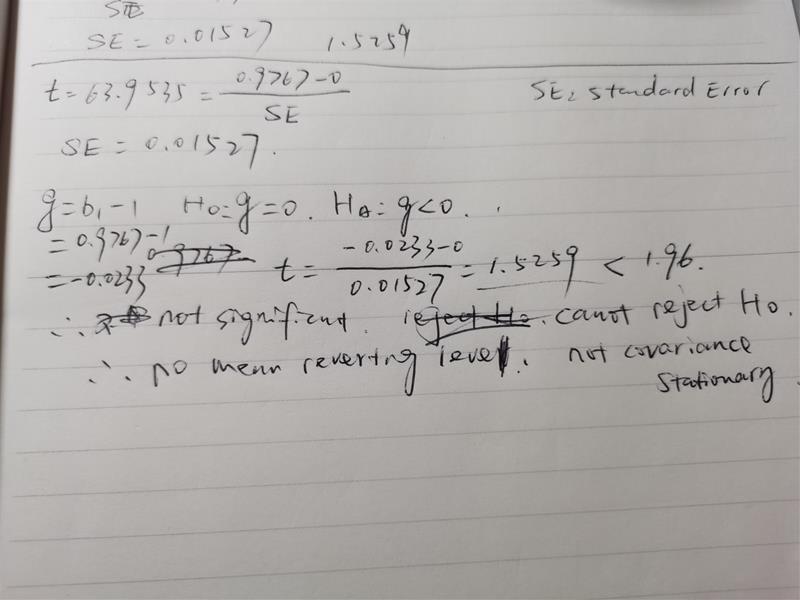 SE
SE = 0.01527 1.5259
t = 63.9535 = (0.9767-0)/SE SE: Standard Error
SE = 0.01527.
g = b₁-1 H0: g=0. HA: g<0.
= 0.9767-1
= -0.0233 0.9767 t = (-0.0233-0)/0.01527 = 1.5259 < 1.96.
∴ not significant. reject H0. canot reject H0.
∴ no mean reverting level. not covariance
stationary.